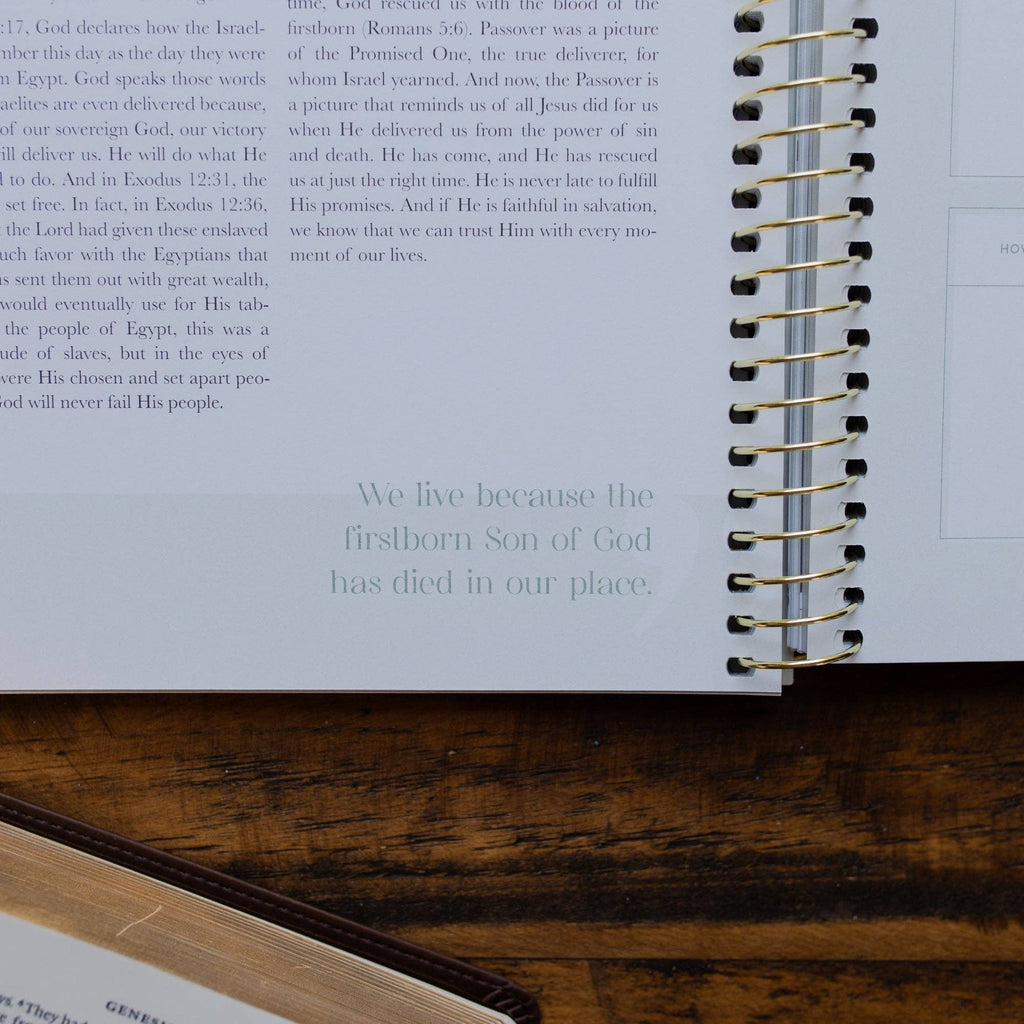 :17, God declares how the Israel-
this day as the day they were
Egypt. God speaks those words
are even delivered because,
of our sovereign God, our victory
deliver us. He will do what He
to do. And in Exodus 12:31, the
set free. In fact, in Exodus 12:36,
the Lord had given these enslaved
favor with the Egyptians that
sent them out with great wealth,
would eventually use for His tab-
the people of Egypt, this was a
of slaves, but in the eyes of
were His chosen and set apart peo-
God will never fail His people.
time, God rescued us with the blood of the
firstborn (Romans 5:6). Passover was a picture
of the Promised One, the true deliverer, for
whom Israel yearned. And now, the Passover is
a picture that reminds us of all Jesus did for us
when He delivered us from the power of sin
and death. He has come, and He has rescued
us at just the right time. He is never late to fulfill
His promises. And if He is faithful in salvation,
we know that we can trust Him with every mo-
ment of our lives.
We live because the
firstborn Son of God
has died in our place.
HOW
GENES
4They had